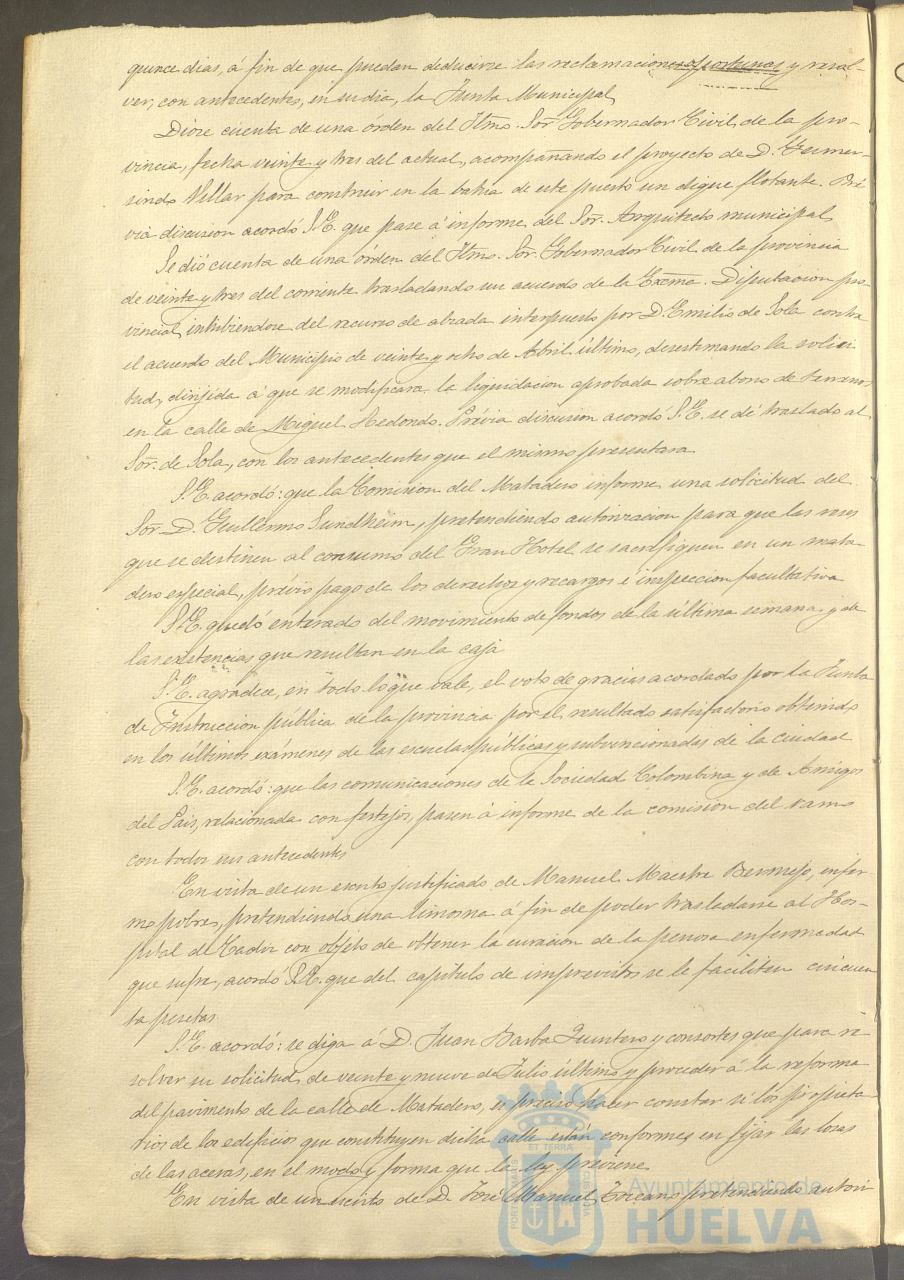 quince dias, á fin de que puedan deducirse las reclamaciones oportunas y resol-
ver, con antecedentes, en su dia, la Junta Municipal
Dióse cuenta de una órden del Iltmo. Sor. Gobernador Civil de la pro-
vincia, fecha veinte y tres del actual, acompañando el proyecto de D. Gumer-
sindo Villar para construir en la bahia de este puerto un dique flotante. Pré
via discusion acordó S.E. que pase á informe del Sor. Arquitecto municipal
Se dió cuenta de una órden del Iltmo. Sor. Gobernador Civil de la provincia
de veinte y tres del corriente trasladando un acuerdo de la Excma. Diputacion pro-
vincial, inhibiendose del recurso de alzada interpuesto por D. Emilio de Sola contra
el acuerdo del Municipio de veinte y ocho de Abril último, desestimando la solici
tud, dirijida á que se modificara la liquidacion aprobada sobre abono de terrenos
en la calle de Miguel Redondo. Prévia discusion acordó S.E. se dé traslado al
Sor. de Sola, con los antecedentes que el mismo presentara
S.E. acordó: que la Comision del Matadero informe una solicitud del
Sor. D. Guillermo Sundheim, pretendiendo autorizacion para que las reses
que se destinen al consumo del Gran Hotel se sacrifiquen en un mata
dero especial, prévio pago de los derechos y recargos é inspeccion facultativa
S.E. quedó enterado del movimiento de fondos de la última semana y de
las existencias que resultan en la caja
S.E. agradece, en todo lo que vale, el voto de gracias acordado por la Junta
de Instruccion pública de la provincia por el resultado satisfactorio obtenido
en los últimos exámenes de las escuelas públicas y subvencionadas de la ciudad
S.E. acordó: que las comunicaciones de la Sociedad Colombina y de Amigos
del Pais, relacionada con festejos, pasen á informe de la comision del ramo
con todos sus antecedentes
En vista de un escrito justificado de Manuel Maestre Bermejo, enfer
mo pobre, pretendiendo una limosna á fin de poder trasladarse al Hos-
pital de Cadiz con objeto de obtener la curacion de la penosa enfermedad
que sufre, acordó S.E. que del capítulo de imprevistos se le faciliten cincuen
ta pesetas
S.E. acordó: se diga á D. Juan Barba Quintero y consortes que para re-
solver su solicitud de veinte y nueve de Julio último y proceder á la reforma
del pavimento de la calle de Matadero, es preciso hacer constar si los propieta-
rios de los edificios que constituyen dicha calle están conformes en fijar las losas
de las aceras, en el modo y forma que la ley previene
En vista de un escrito de D. José Manuel Toscano pretendiendo autori
Ayuntamiento de
HUELVA